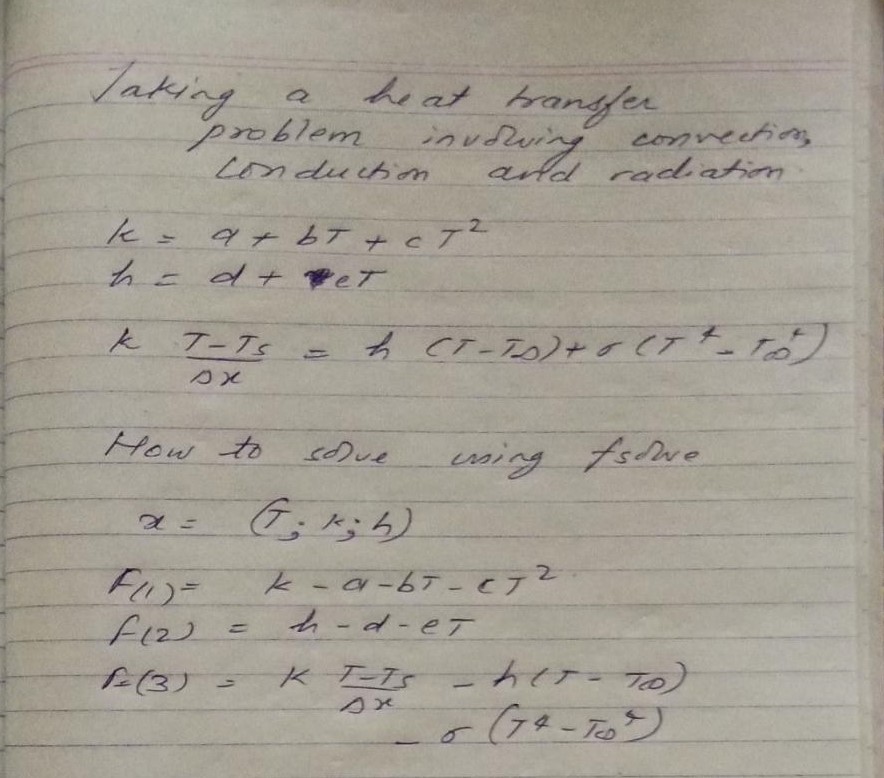 Taking a heat transfer
problem involving convection,
conduction and radiation
k = a + bT + cT²
h = d + eT
k (T-Ts)/Δx = h (T-T∞) + σ (T⁴ - T∞⁴)
How to solve using fsolve
x = (T; k; h)
F(1) = k - a - bT - cT²
f(2) = h - d - eT
F(3) = k (T-Ts)/Δx - h(T - T∞)
- σ (T⁴ - T∞⁴)